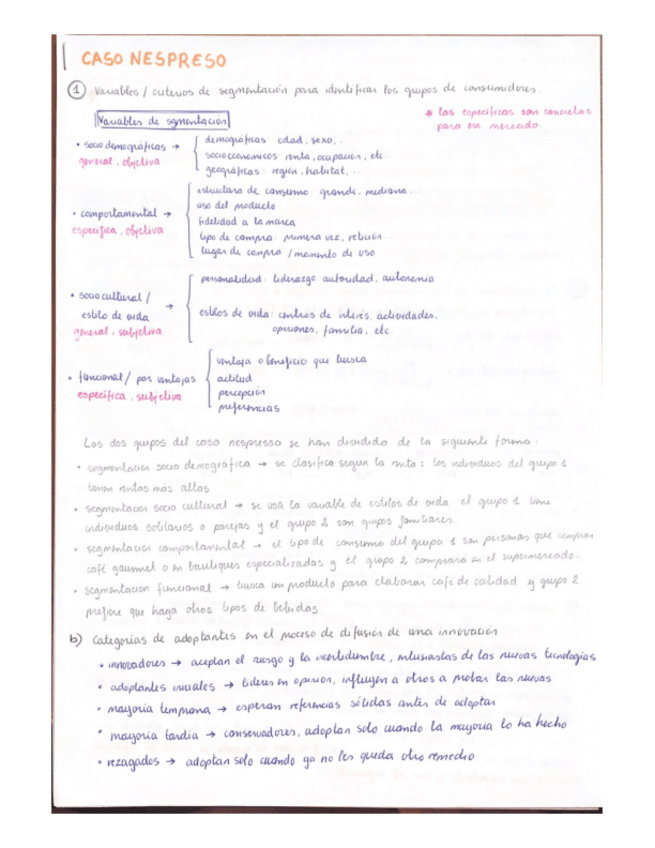 CASO NESPRESO
1 Variables / criterios de segmentación para identificar los grupos de consumidores.
Variables de sgmentación
* las específicas son concretas
para ese mercado.
• sociodemográficas →
general, objetiva
demográficas edad, sexo, ..
socioeconomicos renta, ocupación, etc
geográficas: región, habitat, ...
• comportamental →
específica, objetiva
estructura de consumo: grande, mediana...
uso del producto
fidelidad a la marca
tipo de compra: primera vez, retición...
lugar de compra / momento de uso
• socio cultural /
estilo de vida →
general, subjetiva
personalidad: liderazgo autoridad, autonomia
estilos de vida: centros de interés, actividades,
opiniones, familia, etc.
• funcional / por ventajas
específica, subjetiva
ventaja o beneficio que busca
actitud
percepción
preferencias
Los dos grupos del caso nespresso se han dividido de la siguiente forma:
• segmentacion socio demográfica → se clasifica segun la renta: los individuos del grupo 1
tienen rentas más altas
• segmentacion socio cultural → se usa la variable de estilos de vida el grupo 1 tiene
individuos solitarios o parejas y el grupo 2 son grupos familiares.
• segmentación comportamental → el tipo de consumo del grupo 1 son personas que compran
café gourmet o en boutiques especializadas y el grupo 2 comprará en el supermercado.
• segmentación funcional → busca un producto para elaborar café de calidad y grupo 2
prefiere que haga otros tipos de bebidas.
b) Categorías de adoptantes en el proceso de difusión de una innovación
• innovadores → aceptan el riesgo y la incertidumbre, entusiastas de las nuevas tecnologías
• adoptantes iniciales → líderes en opinion, influyen a otros a probar las nuevas
• mayoría temprana → esperan referencias sólidas antes de adoptar
• mayoría tardia → conservadores, adoptan solo cuando la mayoría lo ha hecho
• rezagados → adoptan solo cuando ya no les queda otro remedio